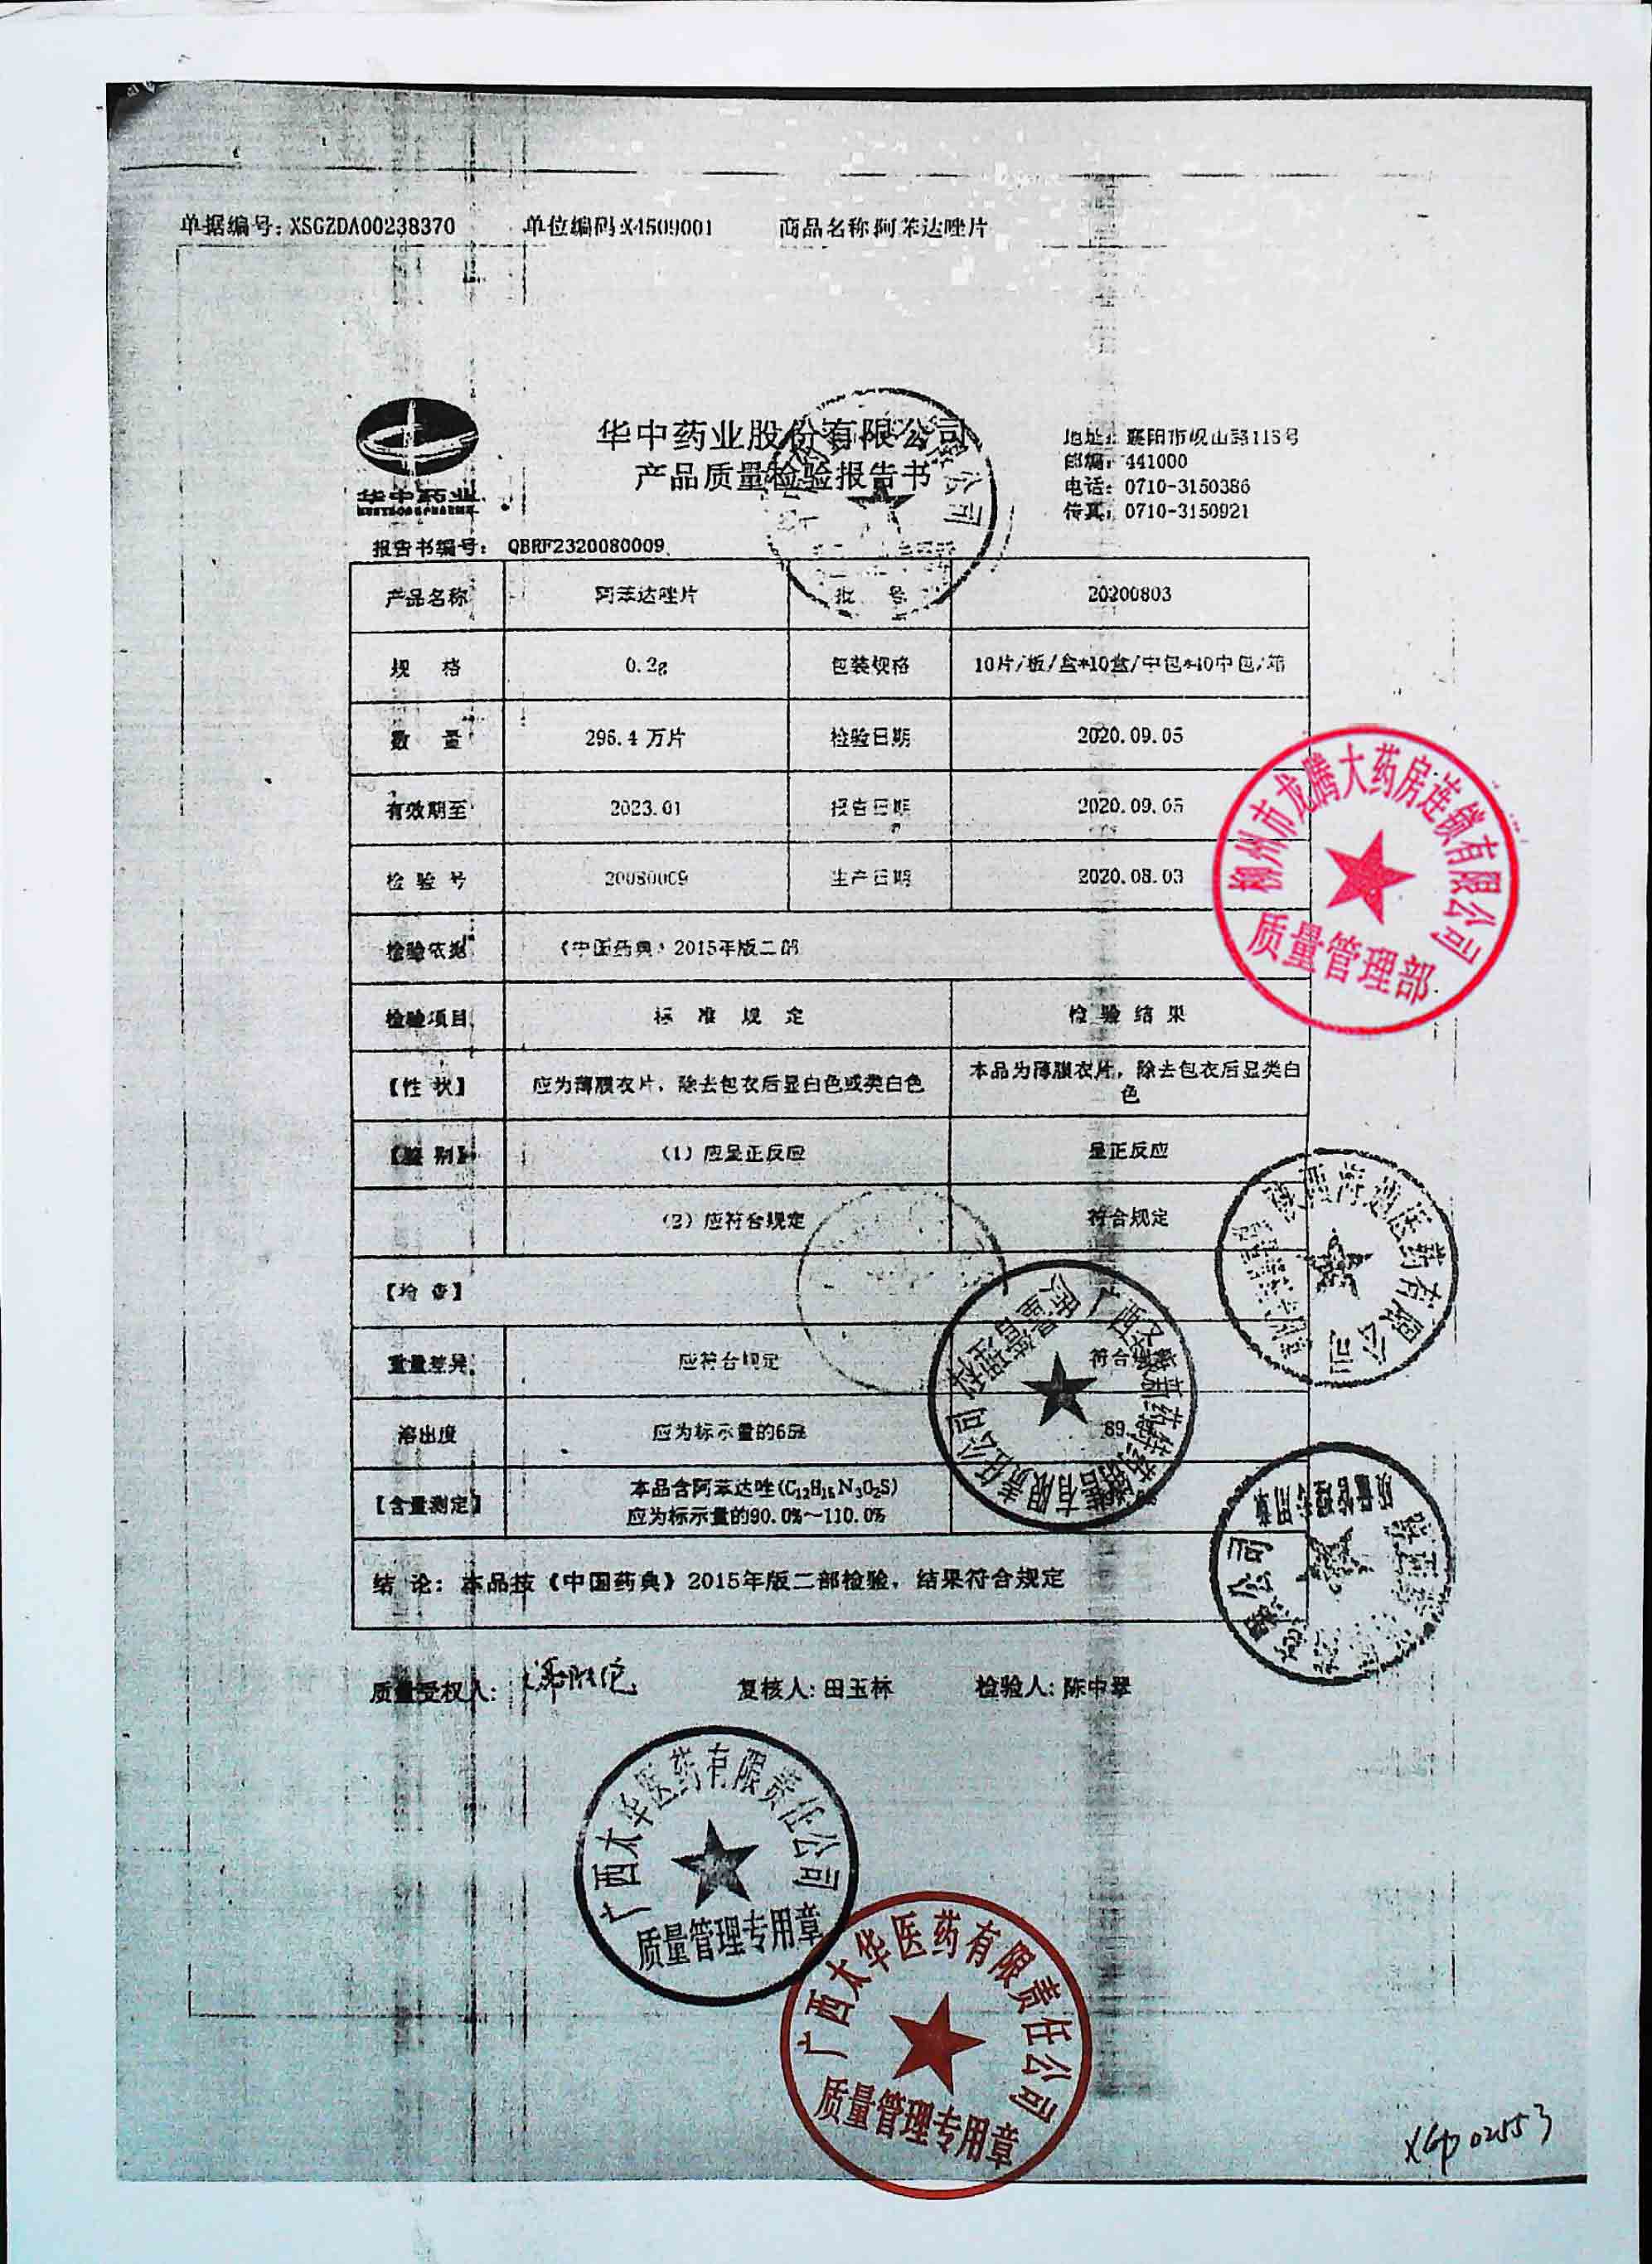 单据编号: XSGZDA00238370 单位编码 X4509001 商品名称 阿苯达唑片
华中药业
华中药业股份有限公司
产品质量检验报告书
地址: 襄阳市岘山路118号
邮编: 441000
电话: 0710-3150386
传真: 0710-3150921
报告书编号: QBRF2320080009
产品名称 阿苯达唑片 批 号 20200803
规 格 0.2g 包装规格 10片/板/盒*10盒/中包*40中包/箱
数 量 296.4 万片 检验日期 2020.09.05
有效期至 2023.01 报告日期 2020.09.05
检 验 号 20080009 生产日期 2020.08.03
检验依据 《中国药典》2015年版二部
检验项目 标 准 规 定 检 验 结 果
【性 状】 应为薄膜衣片，除去包衣后显白色或类白色 本品为薄膜衣片，除去包衣后显类白色
【鉴 别】 (1) 应呈正反应 呈正反应
(2) 应符合规定 符合规定
【检 查】
重量差异 应符合规定 符合
溶出度 应为标示量的65% 89
【含量测定】 本品含阿苯达唑(C12H15N3O2S)
应为标示量的90.0%～110.0%
结 论: 本品按《中国药典》2015年版二部检验，结果符合规定
质量受权人: 复核人: 田玉林 检验人: 陈中翠
柳州市龙腾大药房连锁有限公司
质量管理部
医药有限公司
有限责任公司
广西太华医药有限责任公司
质量管理专用章
广西太华医药有限责任公司
质量管理专用章
XGP02553